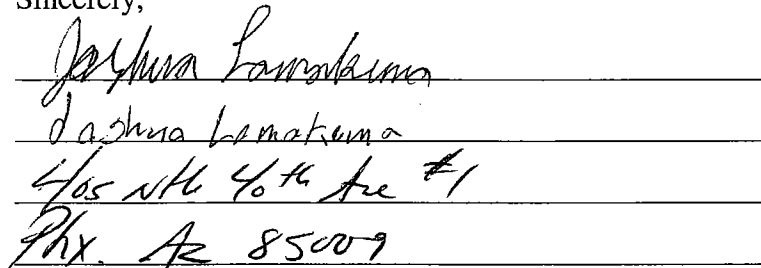 Sincerely,
Joshua Lomakema
Joshua Lomakema
405 Nth 40th Ave #1
Phx. Az 85009